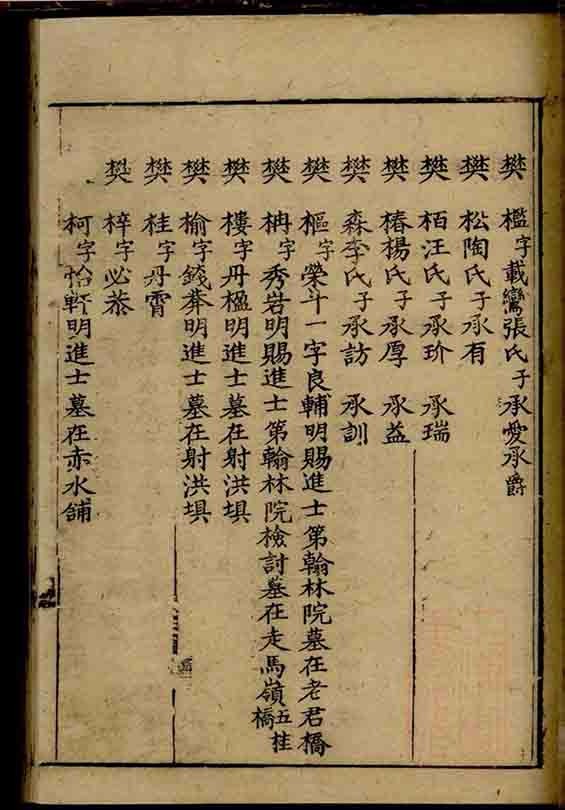 樊 檻字載鸞張氏子承愛承爵
樊 松陶氏子承有
樊 栢汪氏子承玠 承瑞
樊 椿楊氏子承厚 承益
樊 森李氏子承訪 承訓
樊 樞字榮斗一字良輔明賜進士第翰林院墓在老君橋
樊 柟字秀岩明賜進士第翰林院檢討墓在走馬嶺五桂橋
樊 樓字丹楹明進士墓在射洪埧
樊 榆字錢莾明進士墓在射洪埧
樊 桂字丹霄
樊 梓字必恭
柯字怡軒明進士墓在赤水舖